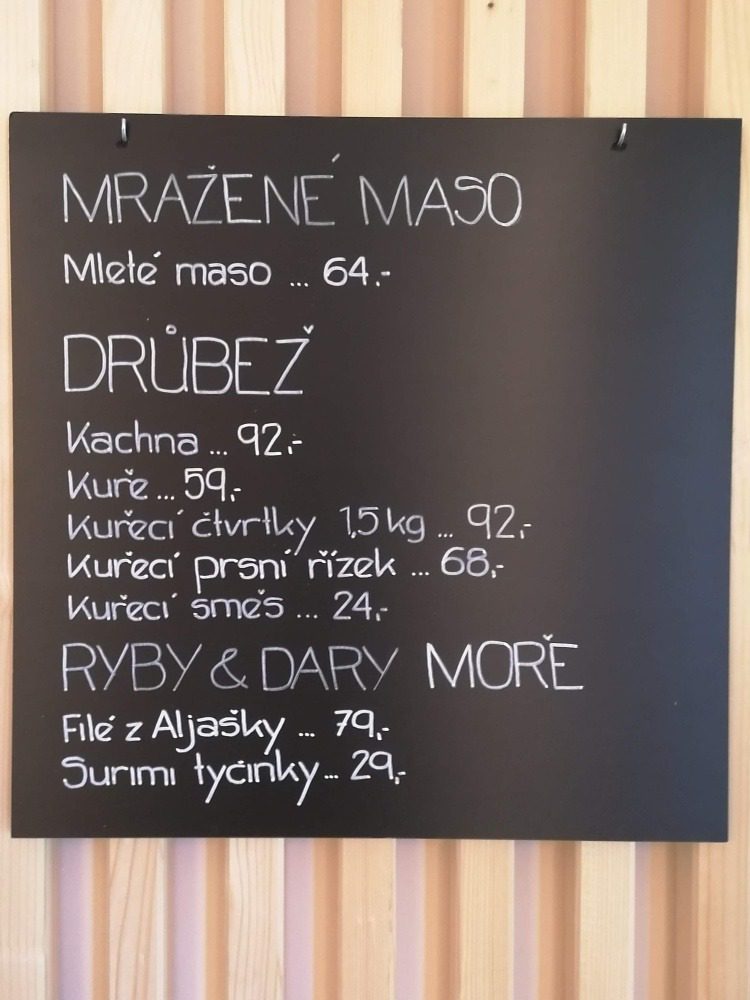 MRAŽENÉ MASO
Mleté maso ... 64.-
DRŮBEŽ
Kachna ... 92,-
Kuře ... 59,-
Kuřecí čtvrtky 1,5 kg ... 92,-
Kuřecí prsní řízek ... 68,-
Kuřecí směs ... 24,-
RYBY & DARY MOŘE
Filé z Aljašky ... 79,-
Surimi tyčinky ... 29,-